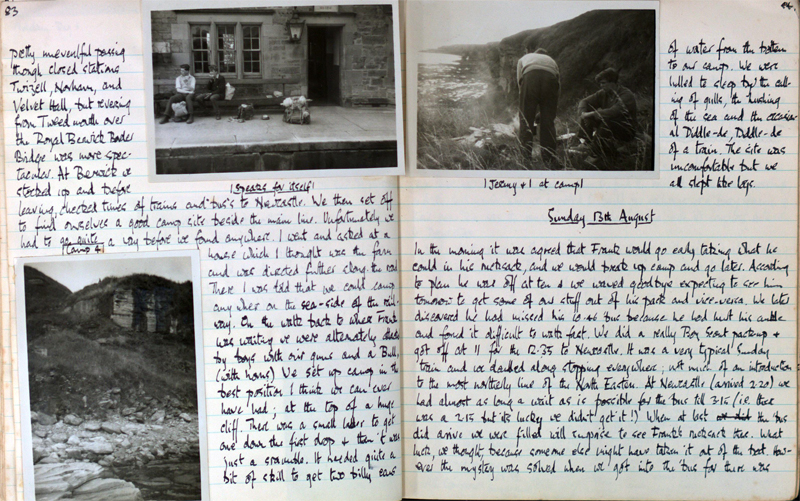 83
pretty uneventful passing
though closed stations
Twizell, Norham, and
Velvet Hall, but reversing
from Tweedmouth over
the Royal Berwick Border
Bridge was more spec-
tacular. At Berwick we
stocked up and before
|Speaks for itself|
leaving, checked times of trains and bus's to Newcastle. We then set off
to find ourselves a good camp site beside the main line. Unfortunately we
had to go quite a way before we found anywhere. I went and asked at a
|Camp 4|
house which I thought was the farm
and was directed further along the road
There I was told that we could camp
anywhere on the sea-side of the rail-
way. On the walk back to where Frantz
was waiting we were alternately
by boys with air guns and a Bull,
(with horns) We set up camp in the
best position I think we can ever
have had; at the top of a huge
cliff. There was a small ladder to get
one down the first drop & then it was
just a scramble. It needed quite a
bit of skill to get two billy cans
84.
of water from the bottom
to our camp. We were
lulled to sleep by the call-
ing of gulls, the hushing
of the sea and the occasion-
al Diddle-de, Diddle-de
of a train. The site was
uncomfortable but we
all slept like logs.
|Jeremy & I at camp|
Sunday 13th August
In the morning it was agreed that Frantz would go early taking what he
could in his rucksack, and we would break up camp and go later. According
to plan he was off at ten & we waved goodbye expecting to see him
tomorrow to get some of our stuff out of his pack and vice-versa. We later
discovered he had missed his because he had hurt his ankle
and found it difficult to walk fast. We did a really Boy Scout pack-up &
got off at 11 for the 12.35 to Newcastle. It was a very typical Sunday
train and we dawdled along stopping everywhere; not much of an introduction
to the most northerly line of the North Eastern. At Newcastle (arrived 2.20) we
had almost as long a wait as is possible for the bus till 3.15 (i.e. there
was a 2.15 but it's lucky we didn't get it!) When at last the bus
did arrive we were filled with surprise to see Frantz's rucksack there. What
luck, we thought, because someone else might have taken it out of the boot. How-
ever the mystery was solved when we got into the bus for there was